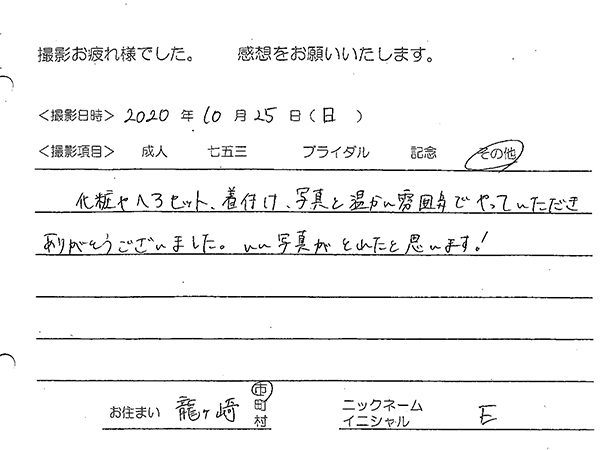 撮影お疲れ様でした。 感想をお願いいたします。
<撮影日時> 2020 年 10 月 25 日 ( 日 )
<撮影項目> 成人 七五三 ブライダル 記念 その他
化粧やヘアセット、着付け、写真と温かい雰囲気でやっていただき
ありがとうございました。いい写真がとれたと思います!
お住まい 龍ヶ崎 市町村 ニックネーム イニシャル E